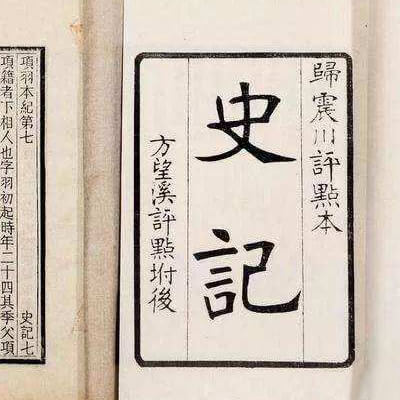 歸震川評點本
史記
方望溪評點坿後
項羽本紀第七 史記七
項籍者下相人也字羽初起時年二十四其季父項